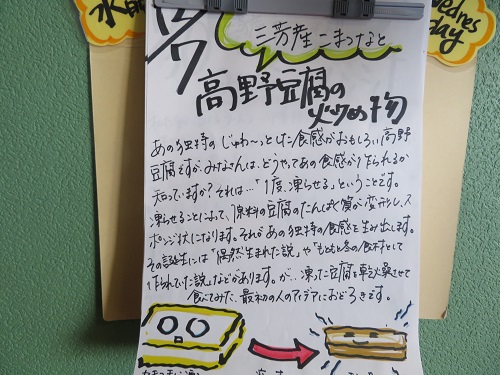 水曜
Wednesday
1/7
三芳産こまつなと
高野豆腐の
炒め物
あの独特のじゅわ~っとした食感がおもしろい高野
豆腐ですが、みなさんは、どうやってあの食感が作られるか
知っていますか?それは…「1度、凍らせる」ということです。
凍らせることによって、原料の豆腐のたんぱく質が変形し、ス
ポンジ状になります。それがあの独特の食感を生み出します。
その誕生には「偶然生まれた説」や「もともと冬の食材として
作られていた説」などがあります。が…凍った豆腐を乾燥させて
食べてみた、最初の人のアイデアにおどろきです。